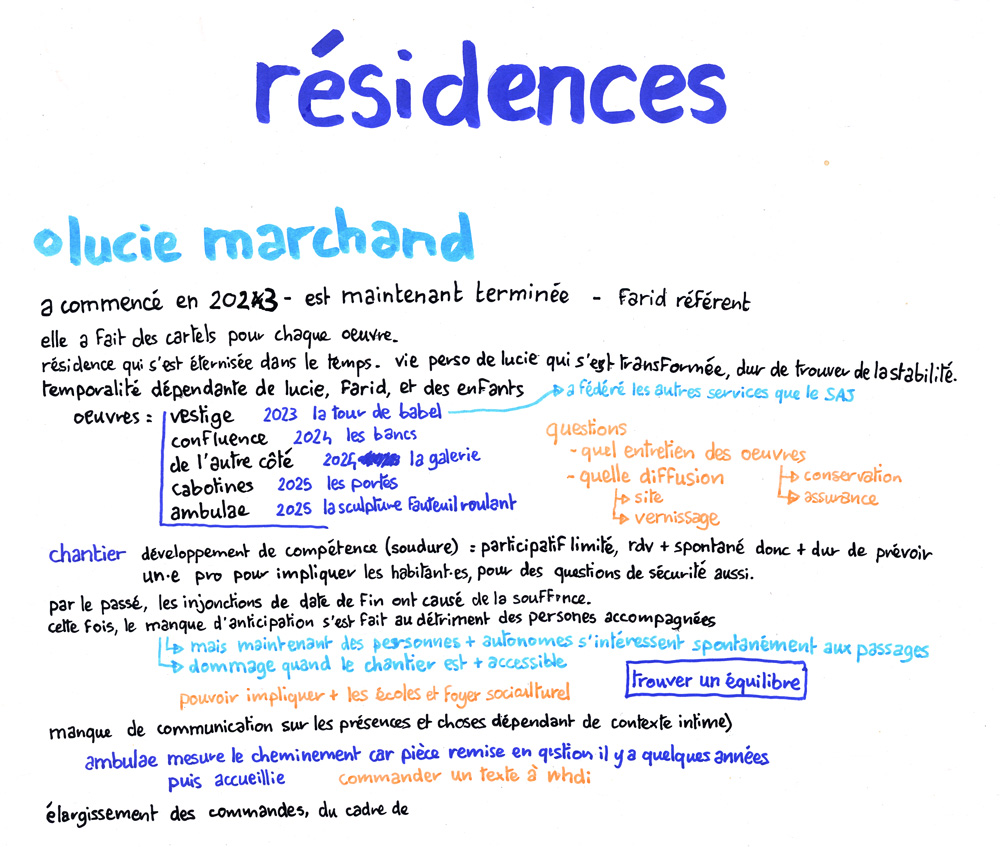 résidences
lucie marchand
a commencé en 2023 - est maintenant terminée - Farid référent
elle a fait des cartels pour chaque oeuvre.
résidence qui s'est éternisée dans le temps. vie perso de lucie qui s'est transformée, dur de trouver de la stabilité.
temporalité dépendante de lucie, Farid, et des enfants
a fédéré les autres services que le SAJ
oeuvres : vestige 2023 la tour de babel
confluence 2024 les bancs
de l'autre côté 2024 la galerie
cabotines 2025 les portes
ambulae 2025 la sculpture fauteuil roulant
questions
- quel entretien des oeuvres
conservation
assurance
- quelle diffusion
site
vernissage
chantier développement de compétence (soudure) : participatif limité, rdv + spontané donc + dur de prévoir
un·e pro pour impliquer les habitant·es, pour des questions de sécurité aussi.
par le passé, les injonctions de date de fin ont causé de la souffrnce.
cette fois, le manque d'anticipation s'est fait au détriment des persones accompagnées
mais maintenant des personnes + autonomes s'intéressent spontanément aux passages
dommage quand le chantier est + accessible
trouver un équilibre
pouvoir impliquer + les écoles et foyer socioculturel
manque de communication sur les présences et choses dépendant de contexte intime)
ambulae mesure le cheminement car pièce remise en qestion il y a quelques années
puis accueillie commander un texte à
élargissement des commandes, du cadre de